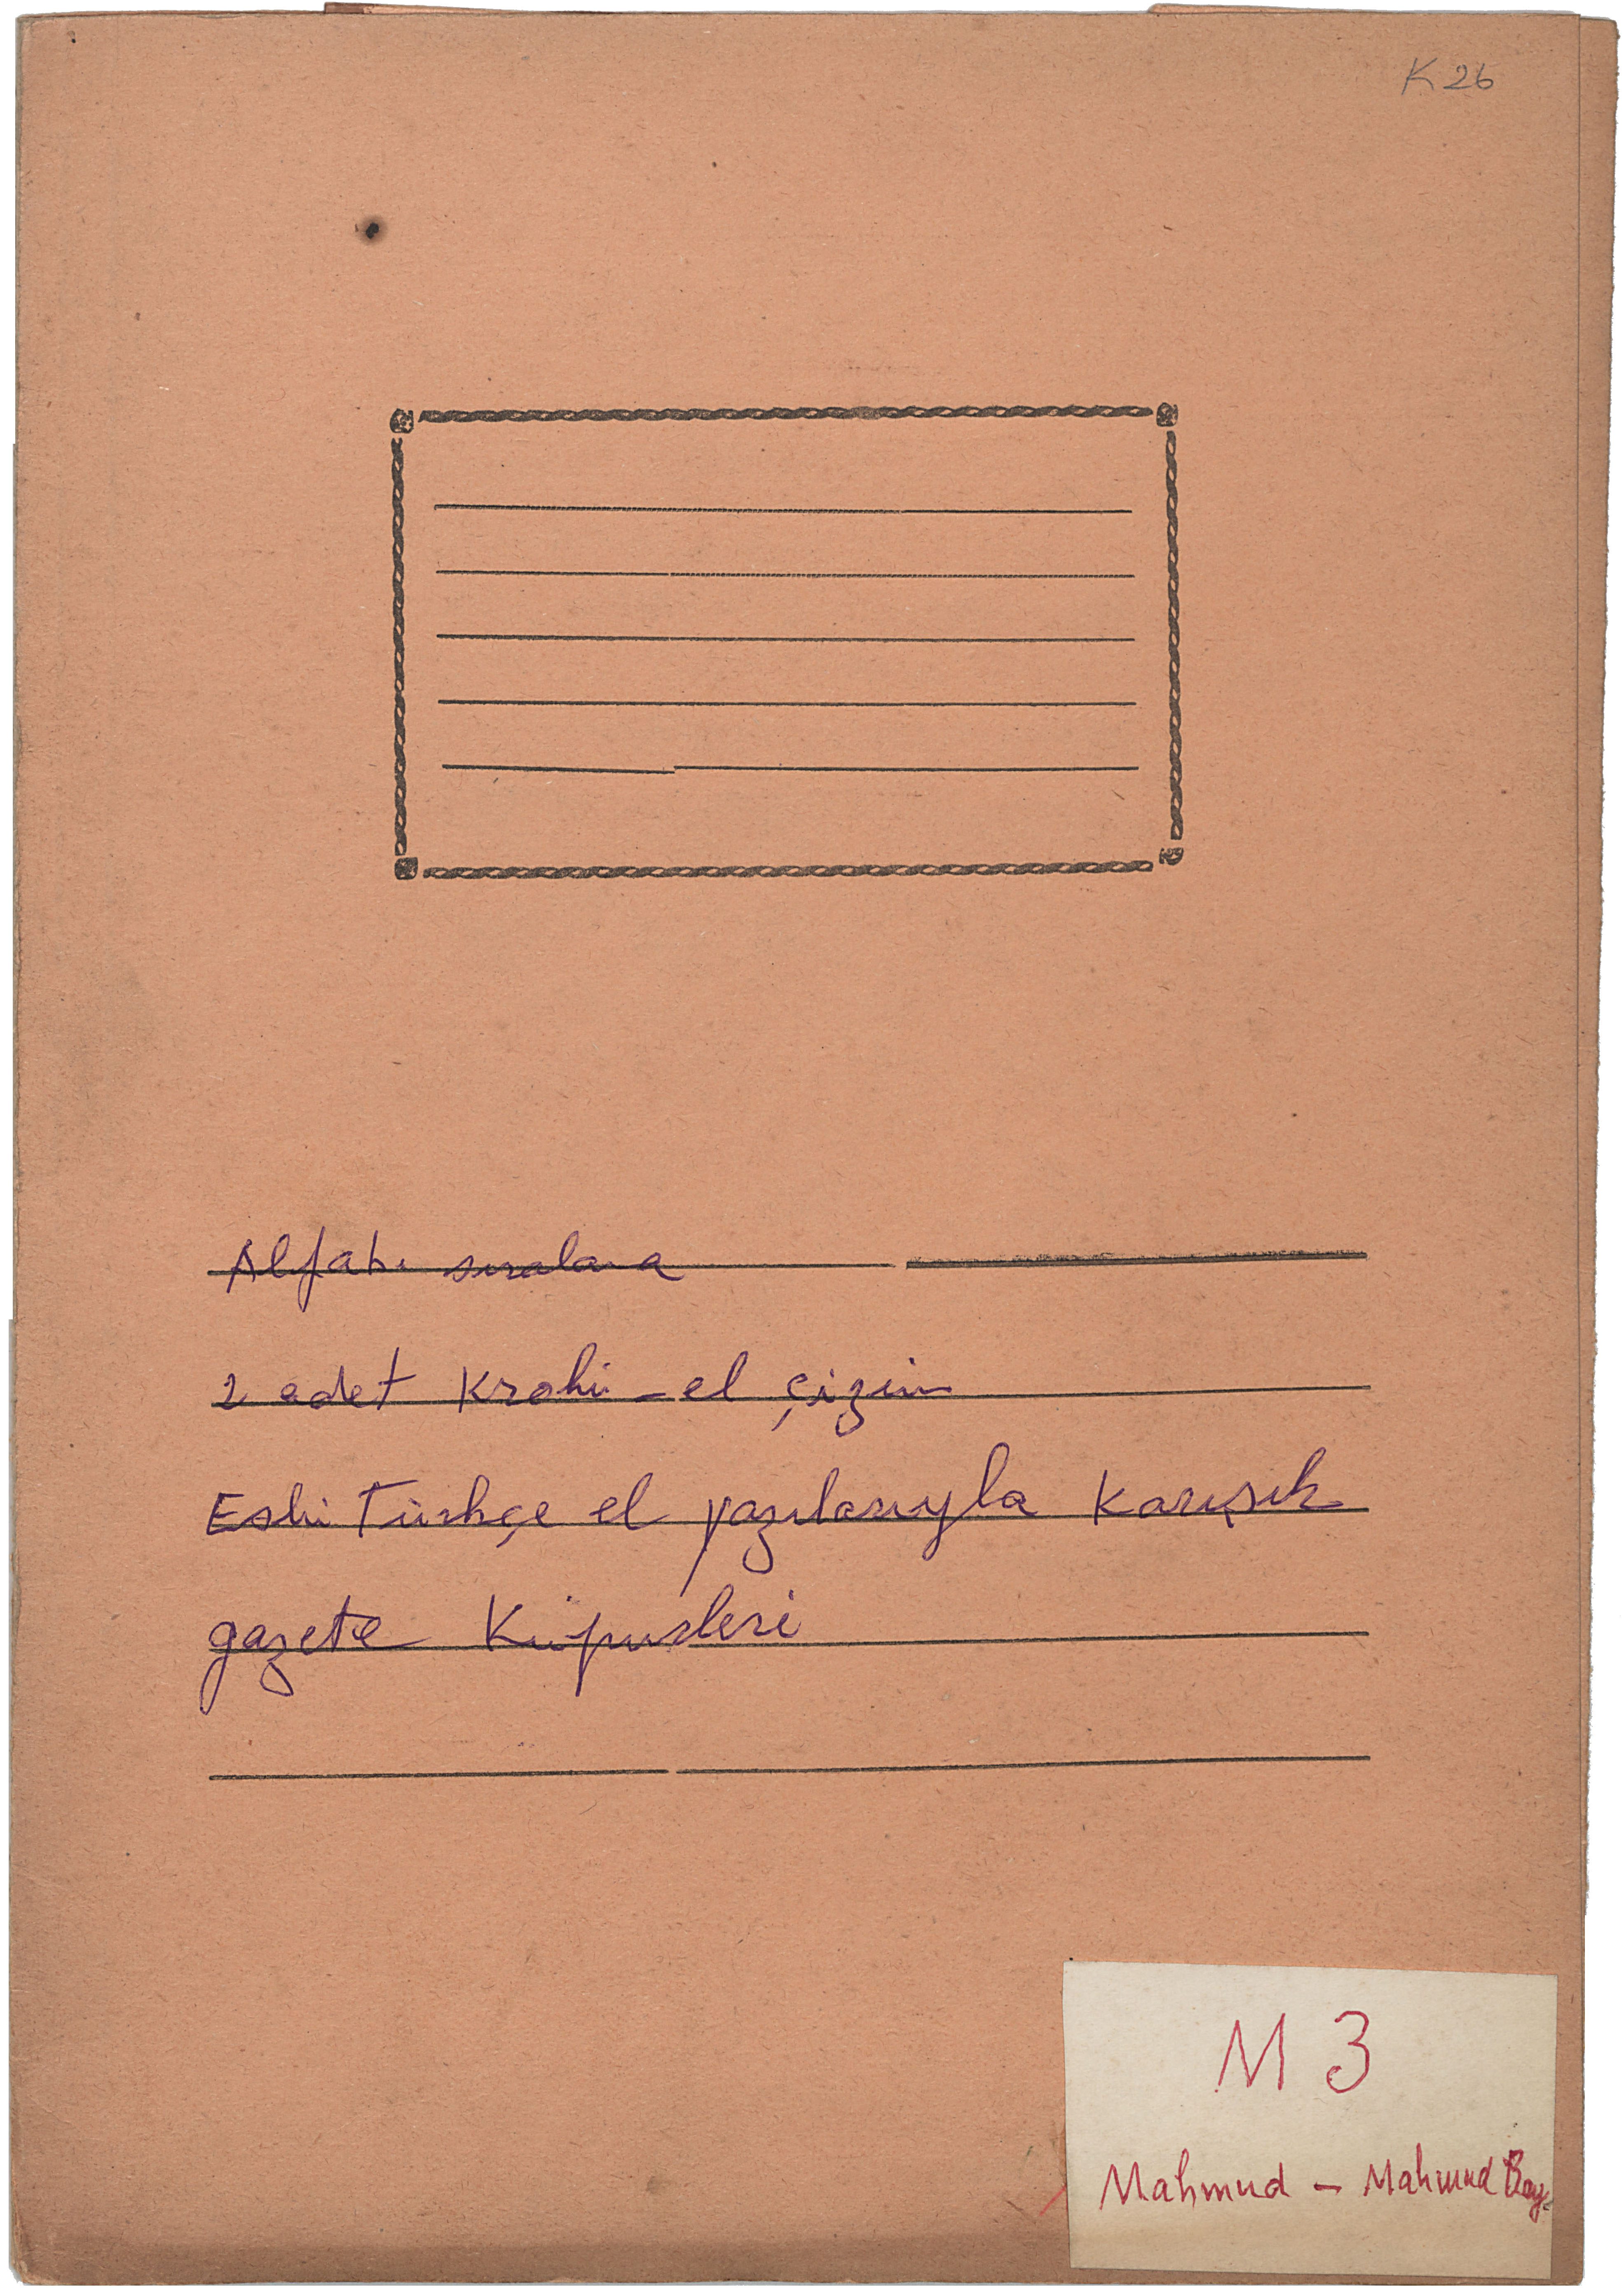 K 26
Alfabe sıralama
2 adet Kroki - el çizim
Eski Türkçe el yazılarıyla Karışık
gazete Küpürleri
M 3
Mahmud - Mahmud Bay.